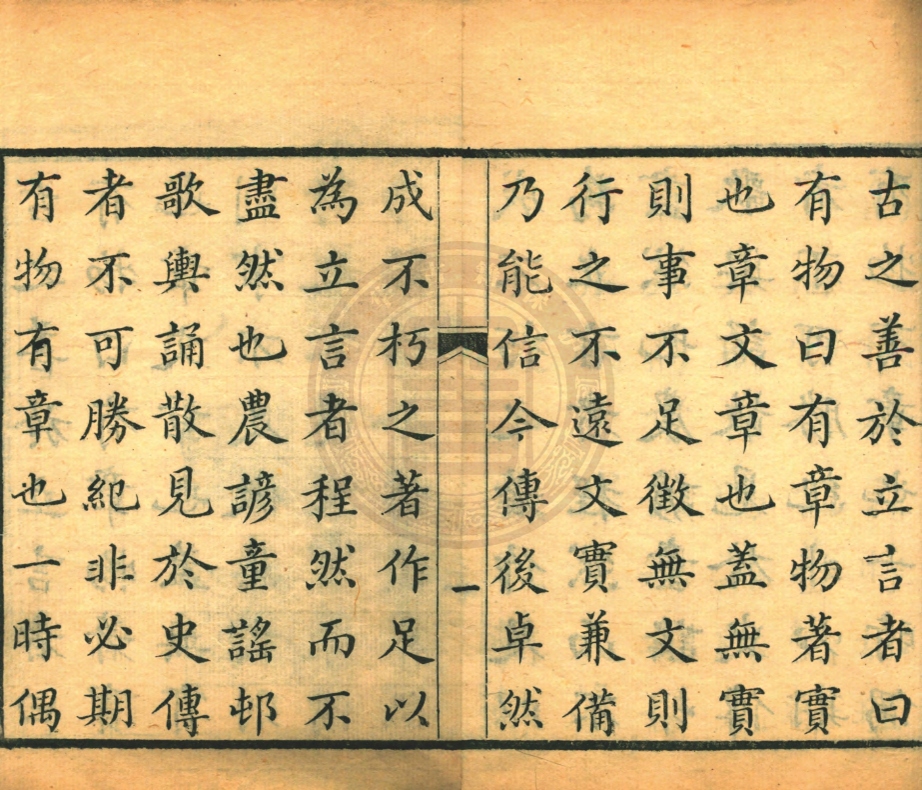 古之善於立言者曰
有物曰有章物著實
也章文章也蓋無實
則事不足徵無文則
行之不遠文實兼備
乃能信今傳後卓然
一
成不朽之著作足以
為立言者程然而不
盡然也農諺童謠邨
歌輿誦散見於史傳
者不可勝紀非必期
有物有章也一時偶